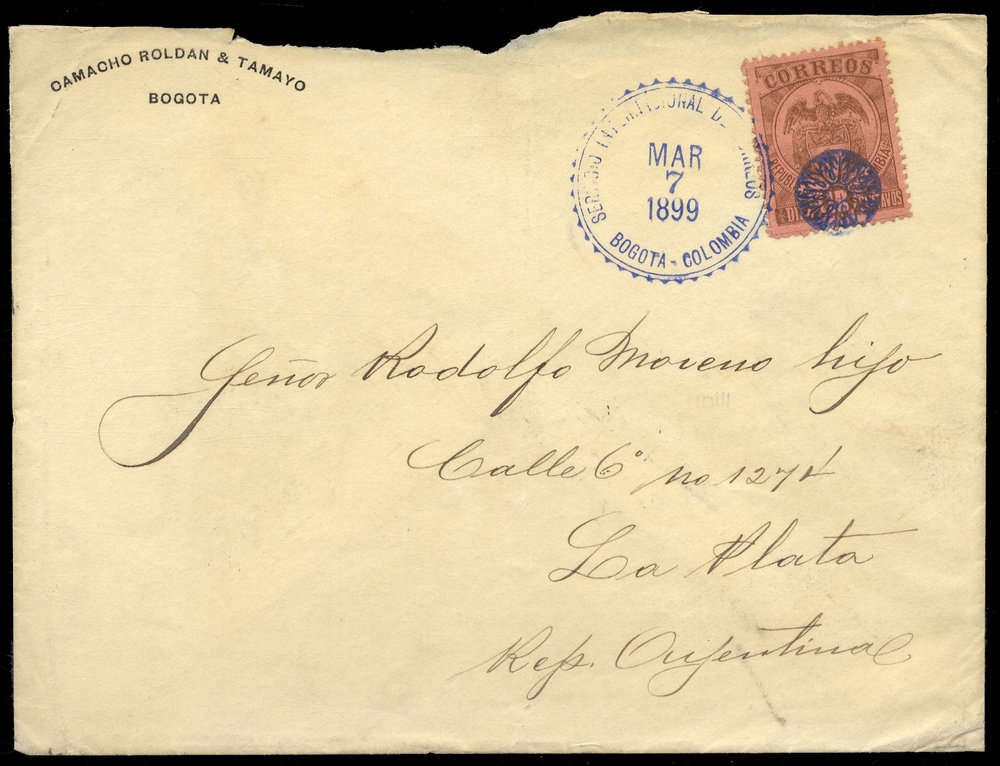 CAMACHO ROLDAN & TAMAYO
BOGOTA
SERVICIO INTERNACIONAL DE CORREOS
MAR
7
1899
BOGOTA - COLOMBIA
CORREOS
Señor Rodolfo Moreno hijo
Calle 6º no 1274
La Plata
Rep. Argentina